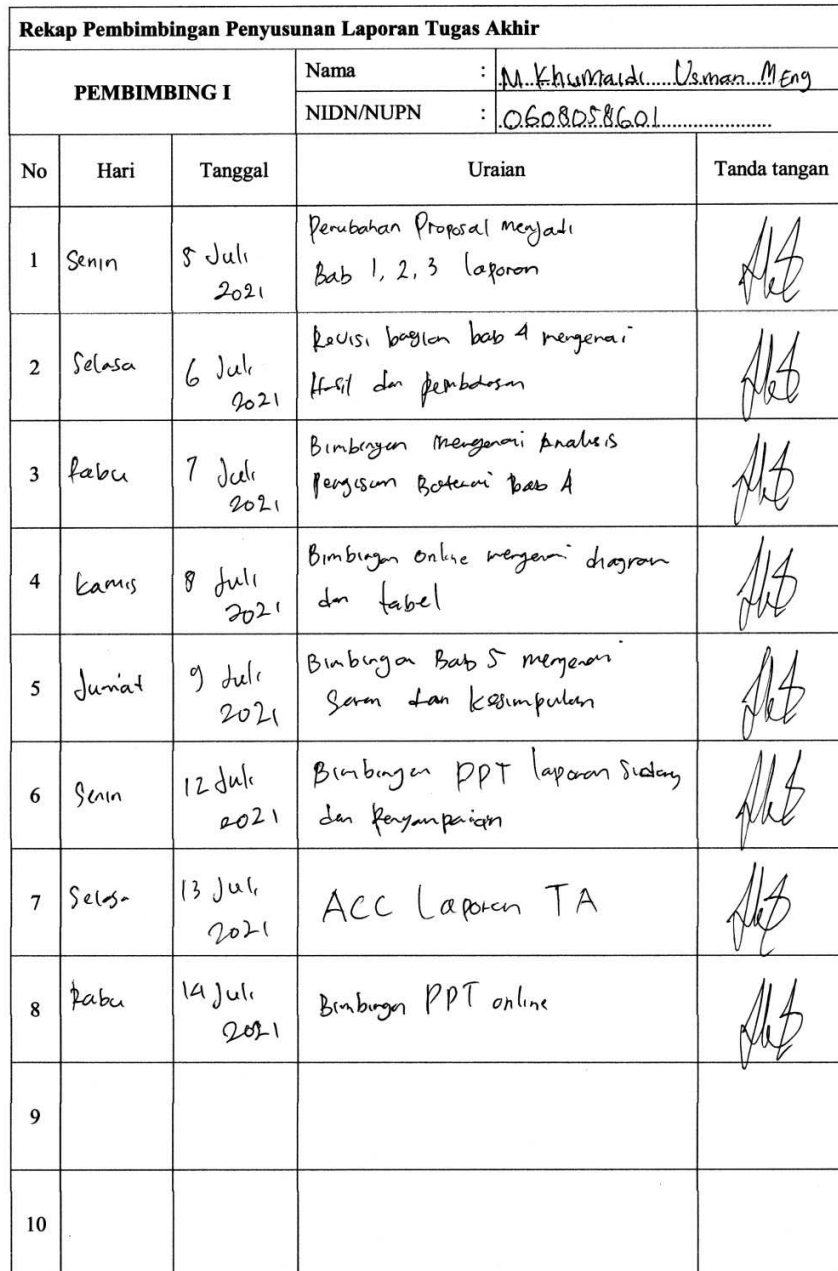 Rekap Pembimbingan Penyusunan Laporan Tugas Akhir
PEMBIMBING I
Nama : M. Khumaidi Usman M Eng
NIDN/NUPN : 0608058601
No Hari Tanggal Uraian Tanda tangan
1 Senin 5 Juli 2021 Perubahan Proposal menjadi
Bab 1, 2, 3 laporan
2 Selasa 6 Juli 2021 Revisi bagian bab 4 mengenai
Hasil dan pembahasan
3 Rabu 7 Juli 2021 Bimbingan mengenai Analisis
Pengisian Baterai bab 4
4 Kamis 8 Juli 2021 Bimbingan online mengenai diagram
dan tabel
5 Jum'at 9 Juli 2021 Bimbingan Bab 5 mengenai
Saran dan kesimpulan
6 Senin 12 Juli 2021 Bimbingan PPT laporan Sidang
dan Penyampaian
7 Selasa 13 Juli 2021 ACC Laporan TA
8 Rabu 14 Juli 2021 Bimbingan PPT online
9
10